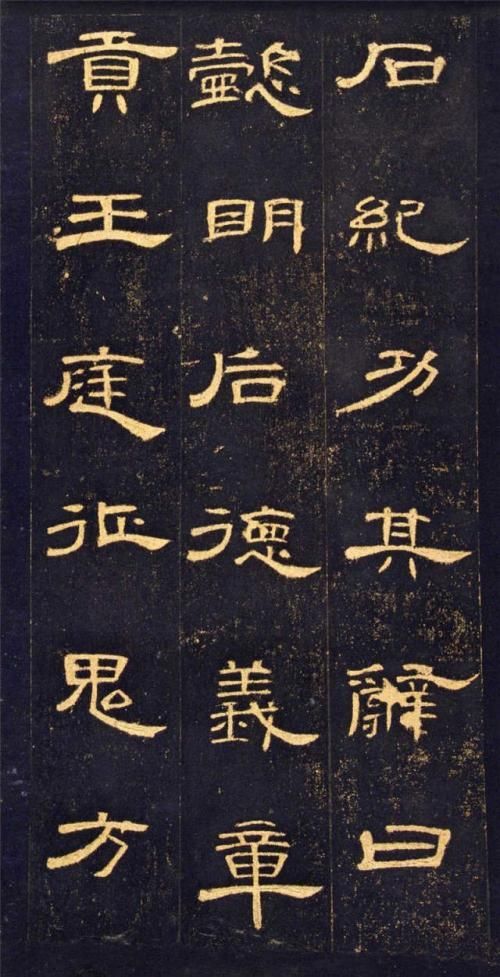 石紀功其辭曰
懿明后德義章
貢王庭征鬼方